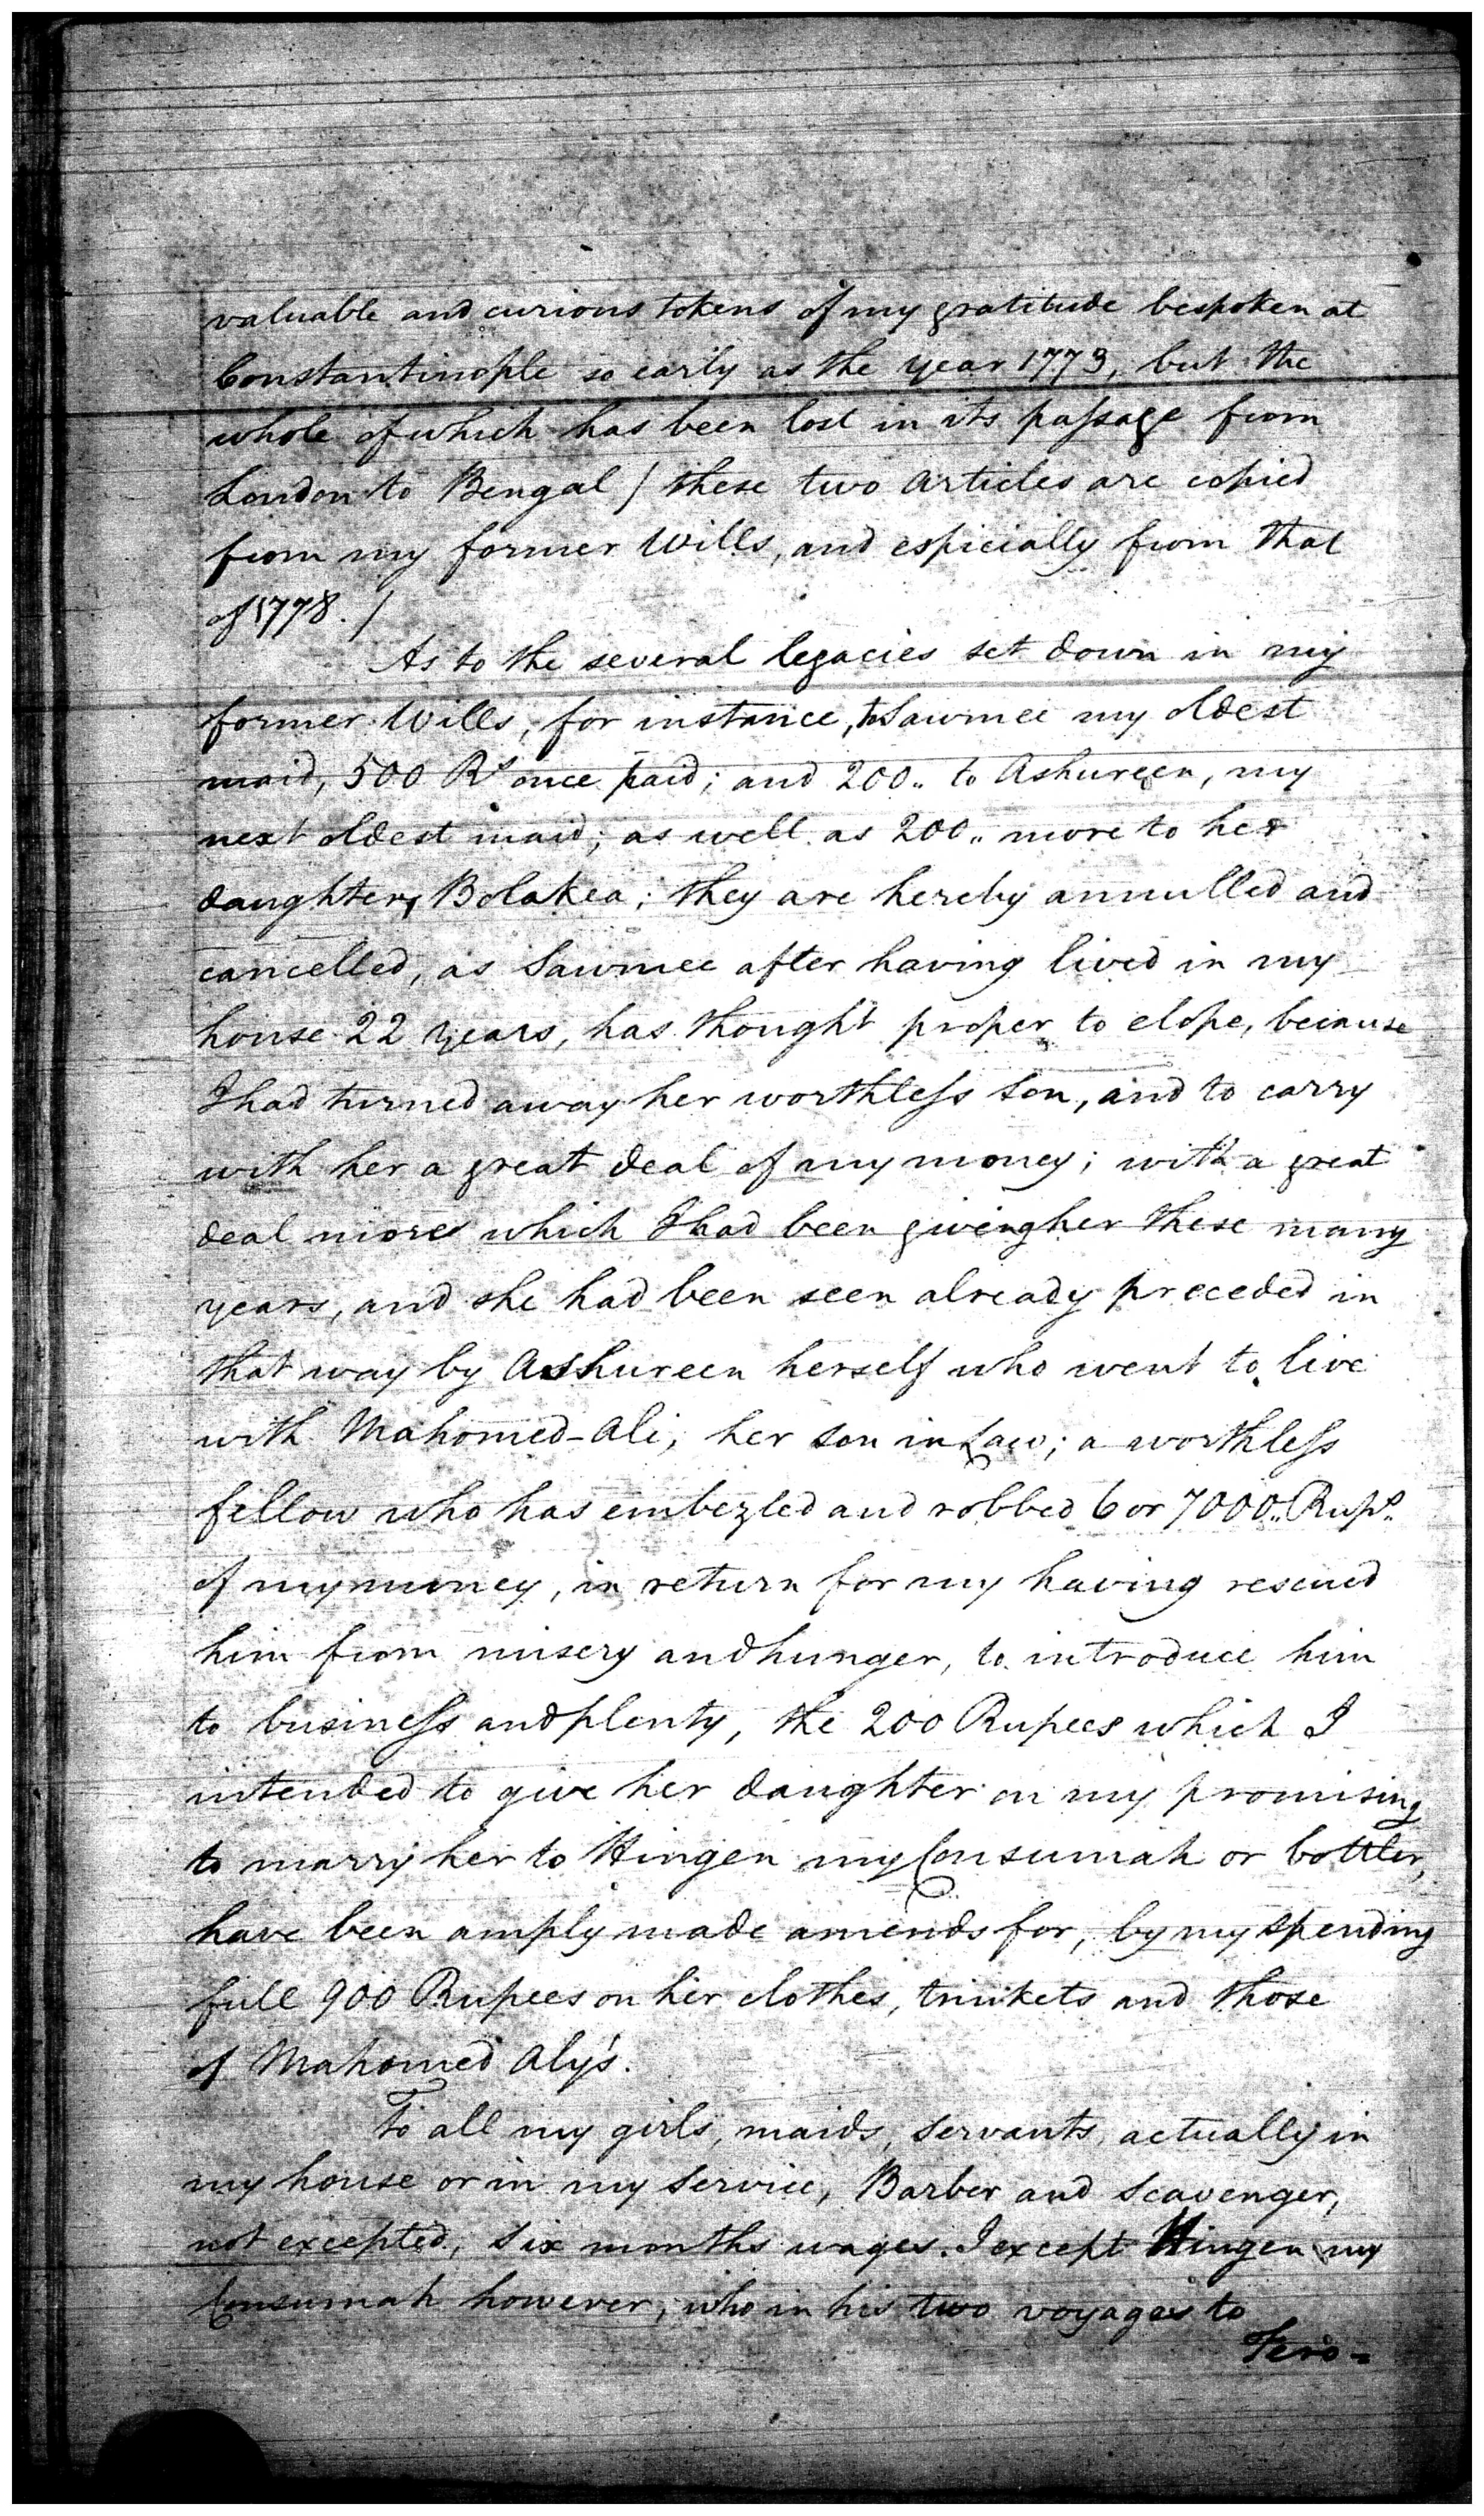 valuable and curious tokens of my gratitude bespoken at
Constantinople so early as the year 1773, but the
whole of which has been lost in its passage from
London to Bengal / these two articles are copied
from my former Wills, and espicially from that
of 1778. /
As to the several legacies set down in my
former Wills, for instance, to Sawmee my oldest
maid, 500 Rs once paid; and 200.. to Ashureen, my
next oldest maid; as well as 200.. more to her
daughter, Bolakea; they are hereby annulled and
cancelled, as Sawmee after having lived in my
house 22 years, has thought proper to elope, because
I had turned away her worthless son, and to carry
with her a great deal of my money; with a great
deal more which I had been giving her these many
years, and she had been seen already preceded in
that way by Ashureen herself who went to live
with Mahomed-Ali, her son in Law; a worthless
fellow who has embezled and robbed 6 or 7000.. Rups..
of my money, in return for my having rescued
him from misery and hunger, to introduce him
to business and plenty, the 200 Rupees which I
intended to give her daughter on my promising
to marry her to Hingen my Consumah or bottler,
have been amply made amends for, by my spending
full 900 Rupees on her clothes, trinkets and those
of Mahomed Aly's.
To all my girls, maids, servants, actually in
my house or in my service, Barber and Scavenger,
not excepted, six months wages. I except Hingen my
Consumah however, who in his two voyages to
Fero-